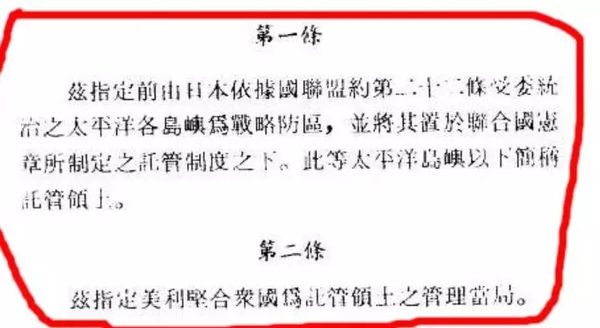 第一條
茲指定前由日本依據國聯盟約第二十二條受委統
治之太平洋各島嶼爲戰略防區，並將其置於聯合國憲
章所制定之託管制度之下。此等太平洋島嶼以下簡稱
託管領土。
第二條
茲指定美利堅合衆國爲託管領土之管理當局。